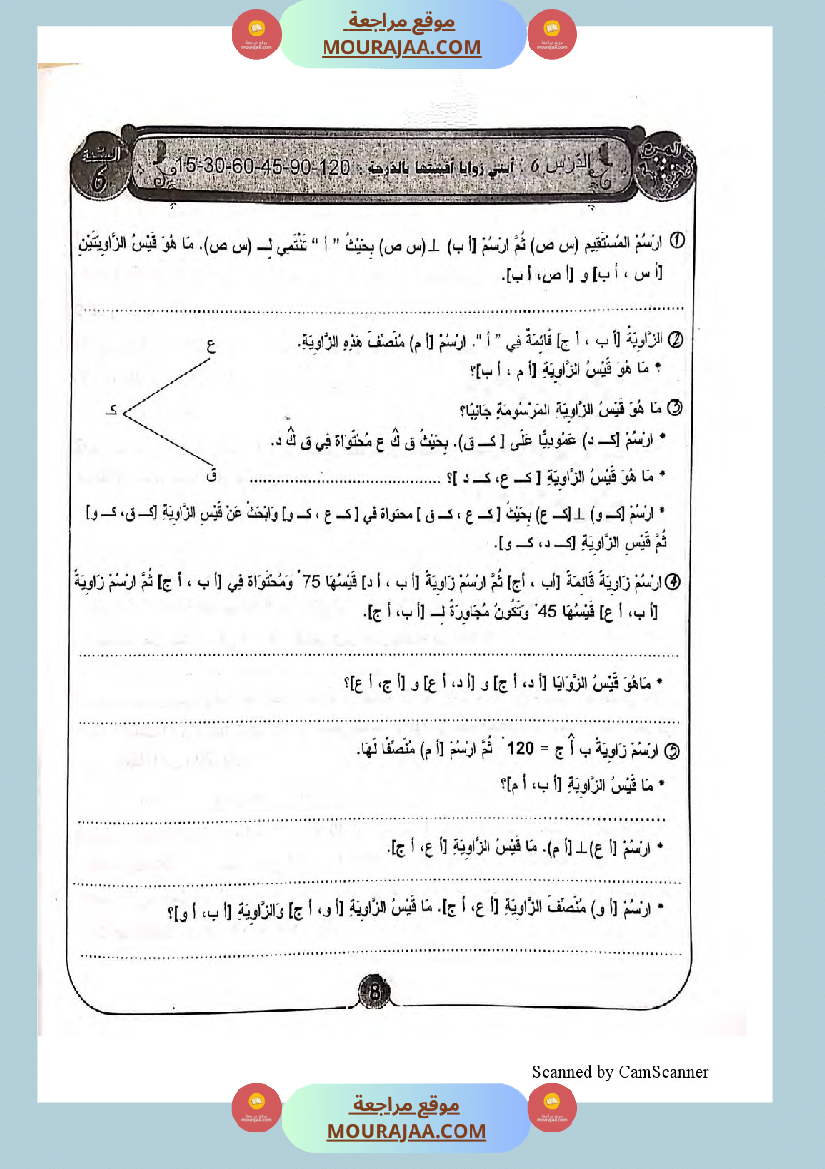 موقع مراجعة
MOURAJAA.COM
السنة 6
الدرس 6 : أبني زوايا أقيستها بالدرجة : 120-90-45-60-30-15
① ارْسُمْ المُسْتَقِيم (س ص) ثُمَّ ارْسُمْ [أ ب) ⊥ (س ص) بِحَيْثُ " أ " تَنْتَمِي لِـ (س ص). مَا هُوَ قَيْسُ الزَّاوِيَتَيْنِ
[أ س ، أ ب] و [أ ص، أ ب].
② الزَّاوِيَةُ [أ ب ، أ ج] قَائِمَةٌ فِي " أ ". ارْسُمْ [أ م) مُنَصِّفَ هَذِهِ الزَّاوِيَةِ.
* مَا هُوَ قَيْسُ الزَّاوِيَةِ [أ م ، أ ب]؟
③ مَا هُوَ قَيْسُ الزَّاوِيَةِ المَرْسُومَةِ جَانِبًا؟
* ارْسُمْ [كـ د) عَمُودِيًّا عَلَى [ كـ ق). بِحَيْثُ ق كˆ ع مُحْتَوَاة فِي ق كˆ د.
* مَا هُوَ قَيْسُ الزَّاوِيَةِ [ كـ ع، كـ د ]؟ ..........................................
* ارْسُمْ [كـ و) ⊥ [كـ ع) بِحَيْثُ [ كـ ع ، كـ ق ] محتواة في [ كـ ع ، كـ و] وَابْحَثْ عَنْ قَيْسِ الزَّاوِيَةِ [كـ ق، كـ و]
ثُمَّ قَيْسِ الزَّاوِيَةِ [كـ د، كـ و].
ع
كـ
ق
④ ارْسُمْ زَاوِيَةً قَائِمَةً [أب ، أج] ثُمَّ ارْسُمْ زَاوِيَةً [أ ب ، أ د] قَيْسُهَا 75° وَمُحْتَوَاة فِي [أ ب ، أ ج] ثُمَّ ارْسُمْ زَاوِيَةً
[أ ب، أ ع] قَيْسُهَا 45° وَتَكُونُ مُجَاوِرَةً لِـ [أ ب، أ ج].
* مَاهُوَ قَيْسُ الزَّوَايَا [أ د، أ ج] و [أ د، أ ع] و [أ ج، أ ع]؟
⑤ ارْسُمْ زَاوِيَةً ب أˆ ج = 120° ثُمَّ ارْسُمْ [أ م) مُنَصِّفًا لَهَا.
* مَا قَيْسُ الزَّاوِيَةِ [أ ب، أ م]؟
* ارْسُمْ [أ ع) ⊥ [أ م). مَا قَيْسُ الزَّاوِيَةِ [أ ع، أ ج].
* ارْسُمْ [أ و) مُنَصِّفَ الزَّاوِيَةِ [أ ع، أ ج]. مَا قَيْسُ الزَّاوِيَةِ [أ و، أ ج] وَالزَّاوِيَةِ [أ ب، أ و]؟
8
Scanned by CamScanner
موقع مراجعة
MOURAJAA.COM